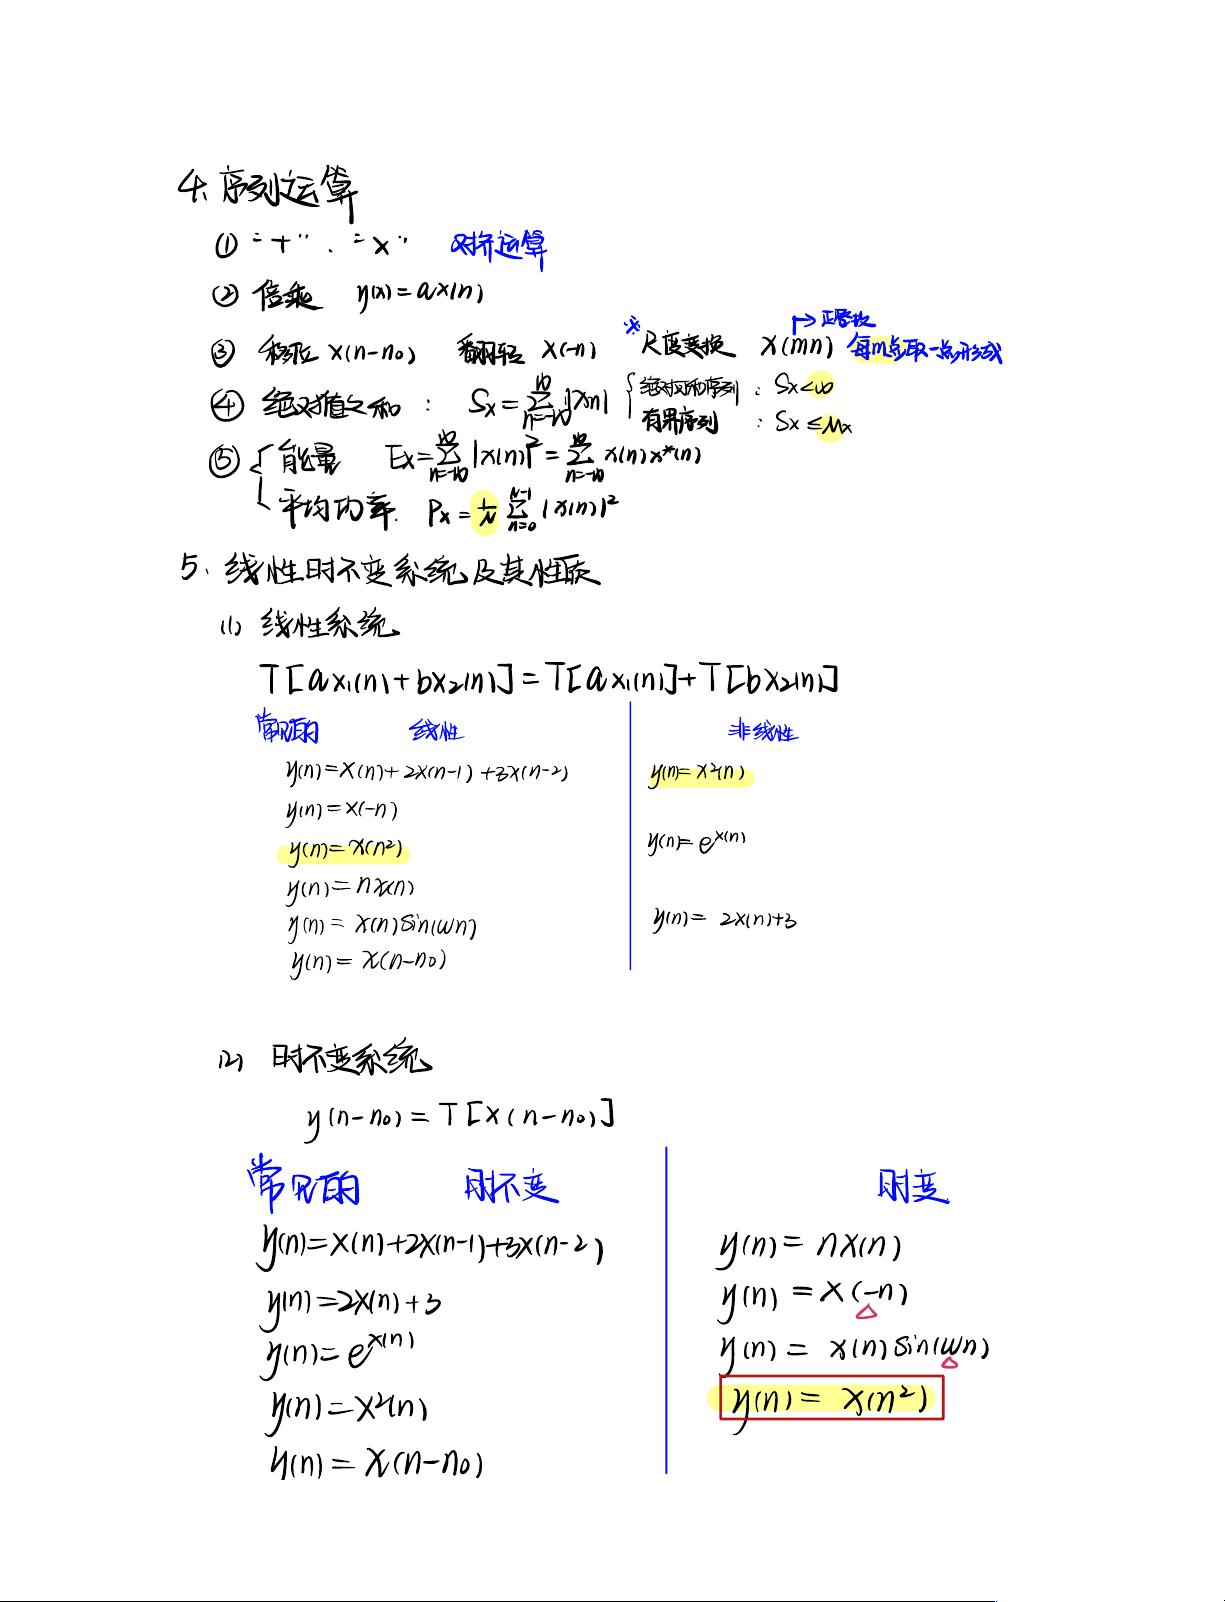 4、序列运算
① “+”、“×” 对齐运算
② 倍乘 y(x)=ax(n)
→正整数
③ 移位 x(n-n₀) 翻转 x(-n) ※尺度变换 x(mn) 每m点取一点形成
④ 绝对值之和： Sx=∑_{n=-∞}^{∞}|x(n)| { 绝对可和序列：Sx<∞
有界序列：Sx≤Mx
⑤ { 能量 Ex=∑_{n=-∞}^{∞}|x(n)|²=∑_{n=-∞}^{∞}x(n)x*(n)
平均功率. Px=1/N ∑_{n=0}^{N-1}|x(n)|²
5、线性时不变系统及其性质
(1) 线性系统
T[ax₁(n)+bx₂(n)]=T[ax₁(n)]+T[bx₂(n)]
常见的 线性 非线性
y(n)=x(n)+2x(n-1)+3x(n-2) y(n)=x²(n)
y(n)=x(-n)
y(n)=e^{x(n)}
y(n)=x(n²)
y(n)=nx(n)
y(n)=x(n)sin(ωn) y(n)=2x(n)+3
y(n)=x(n-n₀)
(2) 时不变系统
y(n-n₀)=T[x(n-n₀)]
常见的 时不变 时变
y(n)=x(n)+2x(n-1)+3x(n-2) y(n)=nx(n)
y(n)=2x(n)+3 y(n)=x(-n)
y(n)=e^{x(n)} y(n)=x(n)sin(ωn)
y(n)=x²(n) y(n)=x(n²)
y(n)=x(n-n₀)